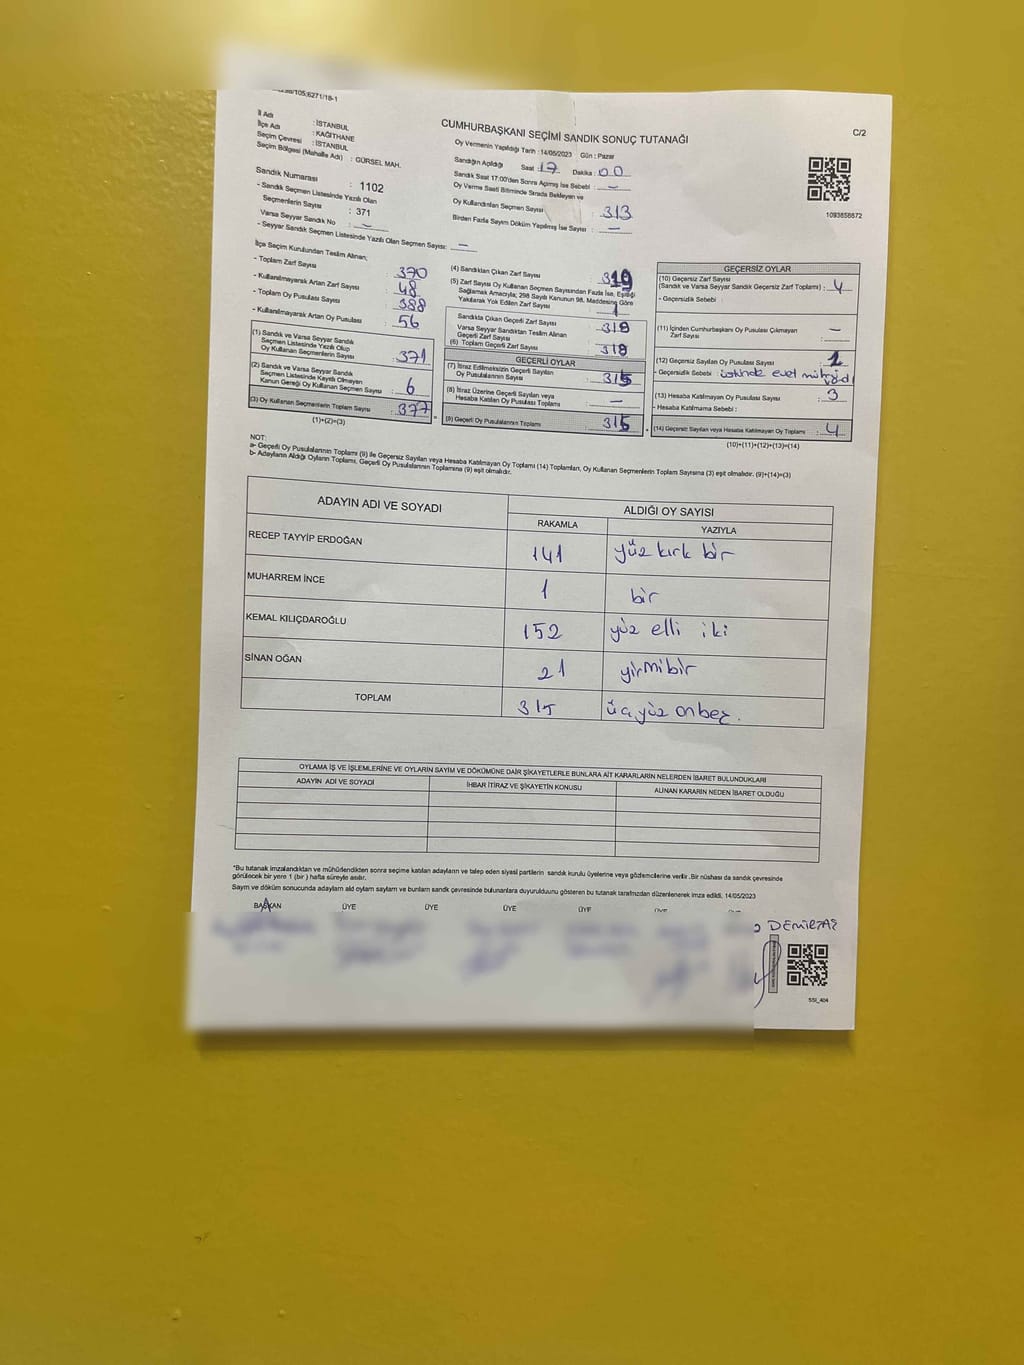 C/2
İl Adı : İSTANBUL
İlçe Adı : KAĞITHANE
Seçim Çevresi : İSTANBUL
Seçim Bölgesi (Mahalle Adı) : GÜRSEL MAH.
CUMHURBAŞKANI SEÇİMİ SANDIK SONUÇ TUTANAĞI
Oy Vermenin Yapıldığı Tarih : 14/05/2023 Gün : Pazar
Sandığın Açıldığı Saat : 17 Dakika : 00
Sandık Saat 17.00'den Sonra Açılmış İse Sebebi : —
Oy Verme Saati Bitiminde Sırada Bekleyen ve
Oy Kullandırılan Seçmen Sayısı : 313
Birden Fazla Sayım Döküm Yapılmış İse Sayısı : —
1093858872
Sandık Numarası : 1102
- Sandık Seçmen Listesinde Yazılı Olan
Seçmenlerin Sayısı : 371
Varsa Seyyar Sandık No : —
- Seyyar Sandık Seçmen Listesinde Yazılı Olan Seçmen Sayısı: —
İlçe Seçim Kurulundan Teslim Alınan;
- Toplam Zarf Sayısı : 370
- Kullanılmayarak Artan Zarf Sayısı : 48
- Toplam Oy Pusulası Sayısı : 388
- Kullanılmayarak Artan Oy Pusulası : 56
(1) Sandık ve Varsa Seyyar Sandık
Seçmen Listesinde Yazılı Olup
Oy Kullanan Seçmenlerin Sayısı : 371
(2) Sandık ve Varsa Seyyar Sandık
Seçmen Listesinde Kayıtlı Olmayan
Kanun Gereği Oy Kullanan Seçmen Sayısı : 6
(3) Oy Kullanan Seçmenlerin Toplam Sayısı : 377
(1)+(2)=(3)
(4) Sandıktan Çıkan Zarf Sayısı : 319
(5) Zarf Sayısı Oy Kullanan Seçmen Sayısından Fazla İse, Eşitliği
Sağlamak Amacıyla; 298 Sayılı Kanunun 98. Maddesine Göre
Yakılarak Yok Edilen Zarf Sayısı : 1
Sandıkta Çıkan Geçerli Zarf Sayısı : 318
Varsa Seyyar Sandıktan Teslim Alınan
Geçerli Zarf Sayısı
(6) Toplam Geçerli Zarf Sayısı : 318
GEÇERLİ OYLAR
(7) İtiraz Edilmeksizin Geçerli Sayılan
Oy Pusulalarının Sayısı : 315
(8) İtiraz Üzerine Geçerli Sayılan veya
Hesaba Katılan Oy Pusulası Toplamı : —
(9) Geçerli Oy Pusulalarının Toplamı : 315
GEÇERSİZ OYLAR
(10) Geçersiz Zarf Sayısı
(Sandık ve Varsa Seyyar Sandık Geçersiz Zarf Toplamı) : 4
- Geçersizlik Sebebi :
(11) İçinden Cumhurbaşkanı Oy Pusulası Çıkmayan
Zarf Sayısı : —
(12) Geçersiz Sayılan Oy Pusulası Sayısı : 1
- Geçersizlik Sebebi : üstünde evet
(13) Hesaba Katılmayan Oy Pusulası Sayısı : 3
- Hesaba Katılmama Sebebi :
(14) Geçersiz Sayılan veya Hesaba Katılmayan Oy Toplamı : 4
(10)+(11)+(12)+(13)=(14)
NOT:
a- Geçerli Oy Pusulalarının Toplamı (9) ile Geçersiz Sayılan veya Hesaba Katılmayan Oy Toplamı (14) Toplamları, Oy Kullanan Seçmenlerin Toplam Sayısına (3) eşit olmalıdır. (9)+(14)=(3)
b- Adayların Aldığı Oyların Toplamı, Geçerli Oy Pusulalarının Toplamına (9) eşit olmalıdır.
ADAYIN ADI VE SOYADI ALDIĞI OY SAYISI
RAKAMLA YAZIYLA
RECEP TAYYİP ERDOĞAN 141 yüz kırk bir
MUHARREM İNCE 1 bir
KEMAL KILIÇDAROĞLU 152 yüz elli iki
SİNAN OĞAN 21 yirmibir
TOPLAM 315 üçyüz onbeş.
OYLAMA İŞ VE İŞLEMLERİNE VE OYLARIN SAYIM VE DÖKÜMÜNE DAİR ŞİKAYETLERLE BUNLARA AİT KARARLARIN NELERDEN İBARET BULUNDUKLARI
ADAYIN ADI VE SOYADI İHBAR İTİRAZ VE ŞİKAYETİN KONUSU ALINAN KARARIN NEDEN İBARET OLDUĞU
*Bu tutanak imzalandıktan ve mühürlendikten sonra seçime katılan adayların ve talep eden siyasi partilerin sandık kurulu üyelerine veya gözlemcilerine verilir. Bir nüshası da sandık çevresinde
görülecek bir yere 1 (bir) hafta süreyle asılır.
Sayım ve döküm sonucunda adayların aldı oyların sayların ve bunların sandık çevresinde bulunanlara duyurulduunu gösteren bu tutanak tarafımızdan düzenlenerek imza edildi. 14/05/2023
BAŞKAN ÜYE ÜYE ÜYE ÜYE
DEMİRTAŞ
SSI_404